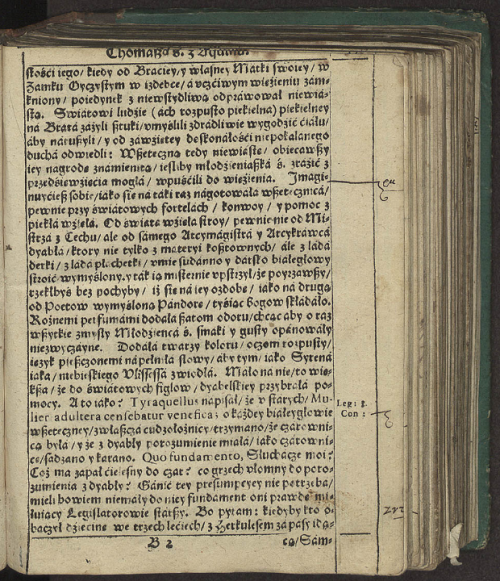 Chomasza s. z Aquinu.
skości iego/ kiedy od Braciey/ y własney Matki swoiey/ w
Zamku Oyczystym w izdebce/ a vczćiwym więzieniu zam-
kniony/ poiedynek z niewstydliwą odprawował niewia-
stą. Swiatowi ludzie (ach rozpusto piekielna) piekielney
na Brata zażyli sztuki/ vmyślili zdradliwie wygodzić ciału/
aby naruszyli/ y od zawziętey doskonałości niepokalanego
ducha odwiedli: Wszeteczną tedy niewiastę/ obiecawszy
iey nagrodę znamienitą/ iesliby młodzieniaszka ś. zrazić z
przedsięwzięcia mogła/ wpuścili do więzienia. Imagi-
nuycież sobie/ iako się na taki raz nagotowała wszetecznica/
pewnie przy światowych fortelach/ konwoy/ y pomoc z
piekła wzięła. Od świata wzięła stroy/ pewnie nie od Mi-
strza z Cechu/ ale od samego Arcymagistra y Arcykrawca
dyabła/ ktory nie tylko z materyi kosztownych/ ale z lada
derki/ z lada płachetki/ vmie sudanno y datsko białegłowy
stroić wymyślony. y tak ią misternie vpstrzył/ że poyrzawszy/
rzekłbyś bez pochyby/ iż się na iey ozdobę/ iako na drugą
od Poetow wymyśloną Pandorę/ tysiąc bogow składało.
Rożnemi perfumami dodała szatom odoru/ chcąc aby o raz
wszytkie zmysły Młodzieńca ś. smaki y gusty opanowały
niezwyczayne. Dodała twarzy koloru/ oczom rozpusty/
ięzyk pieszczonemi napełniła słowy/ aby tym/ iako Syrena
iaka/ niebieskiego Vlissessa zwiodła. Mało na nie/ to wię-
ksza/ że do światowych figlow/ dyabelskiey przybrała po-
mocy. A to iako? Tyraquellus napisał/ że v starych/ Mu-
lier adultera censebatur venefica; o każdey białeygłowie
wszeteczney/ zwłaszcza cudzołożnicy/ trzymano/ że czarowni-
cą była/ y że z dyabły porozumienie miała/ iako czarowni-
ce/ sądzano y karano. Quo fundamento, Słuchacze moi?
Coż ma zapał cielesny do czar? co grzech vłomny do poro-
zumienia z dyabły? Ganić tey presumpcyey nie potrzeba/
mieli bowiem niemały do niey fundament oni prawdę mi-
łuiący Legislatorowie starszy. Bo pytam: kiedyby kto o-
baczył dziecinę we trzech leciech/ z Herkulesem za pasy idą-
Leg: 8.
Con:
B 2
cą/ Sam-